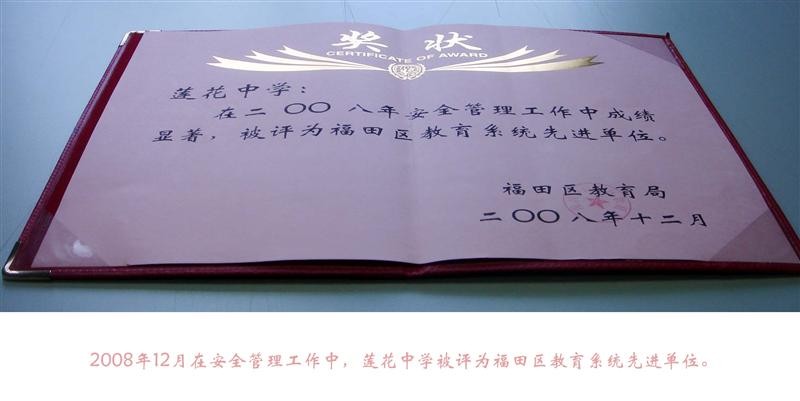 奖状
CERTIFICATE OF AWARD
莲花中学：
在二〇〇八年安全管理工作中成绩
显著，被评为福田区教育系统先进单位。
福田区教育局
二〇〇八年十二月
2008年12月在安全管理工作中，莲花中学被评为福田区教育系统先进单位。